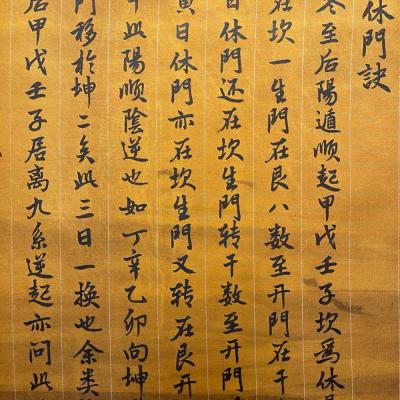 休門訣
冬至后陽遁順起甲戊壬子坎爲休
在坎一生門在艮八数至开門在干
日休門还在坎生門转干数至开門
寅日休門亦在坎生門又转在艮开
此陽順陰逆也如丁辛乙卯向坤
門移於坤二矣此三日一換也余类
后甲戊壬子居离九系逆起亦问此